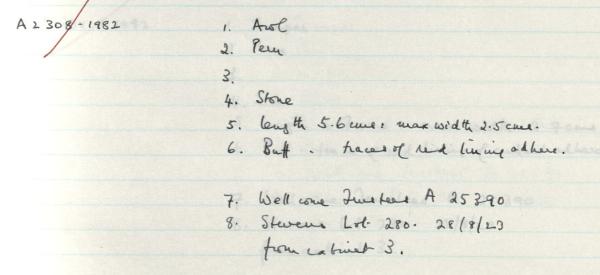 A 2308-1982
1. Awl
2. Peru
3.
4. Stone
5. length 5.6 cms: max width 2.5 cms.
6. Buff. traces of red lining adhere.
7. Wellcome Trustees A 25390
8. Stevens Lot 280. 28/8/23
from cabinet 3.